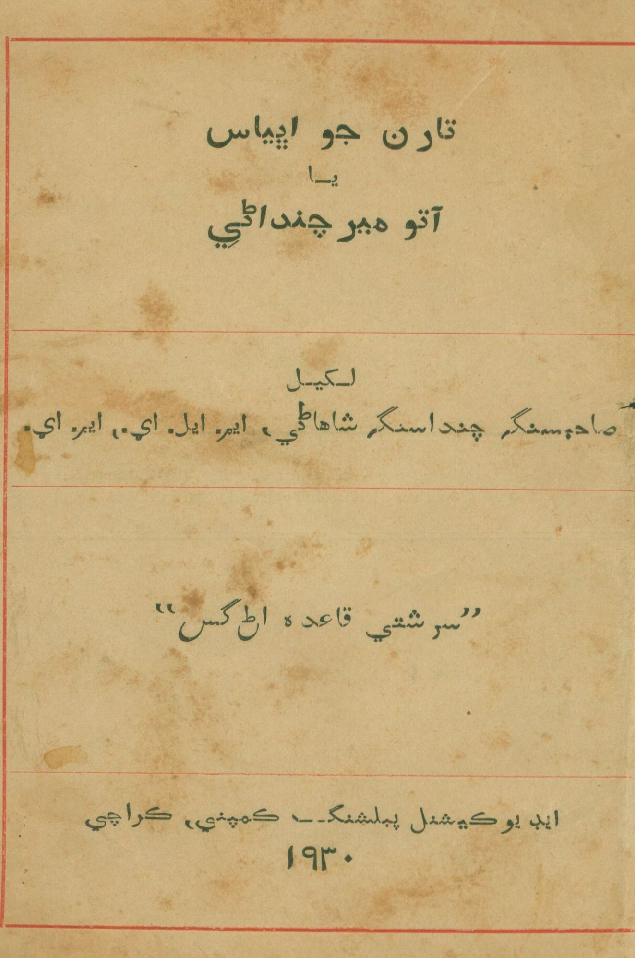 تارن جو اڀياس
يا
آتو ميرچنداڻي
لکيل
صاحبسنگھ چنداسنگھ شاهاڻي، ايم. ايل. اي.، ايم. اي.
”سرشتي قاعده اڻ گس“
ايڊيوڪيشنل پبلشنگ ڪمپني، ڪراچي
١٩٣٠